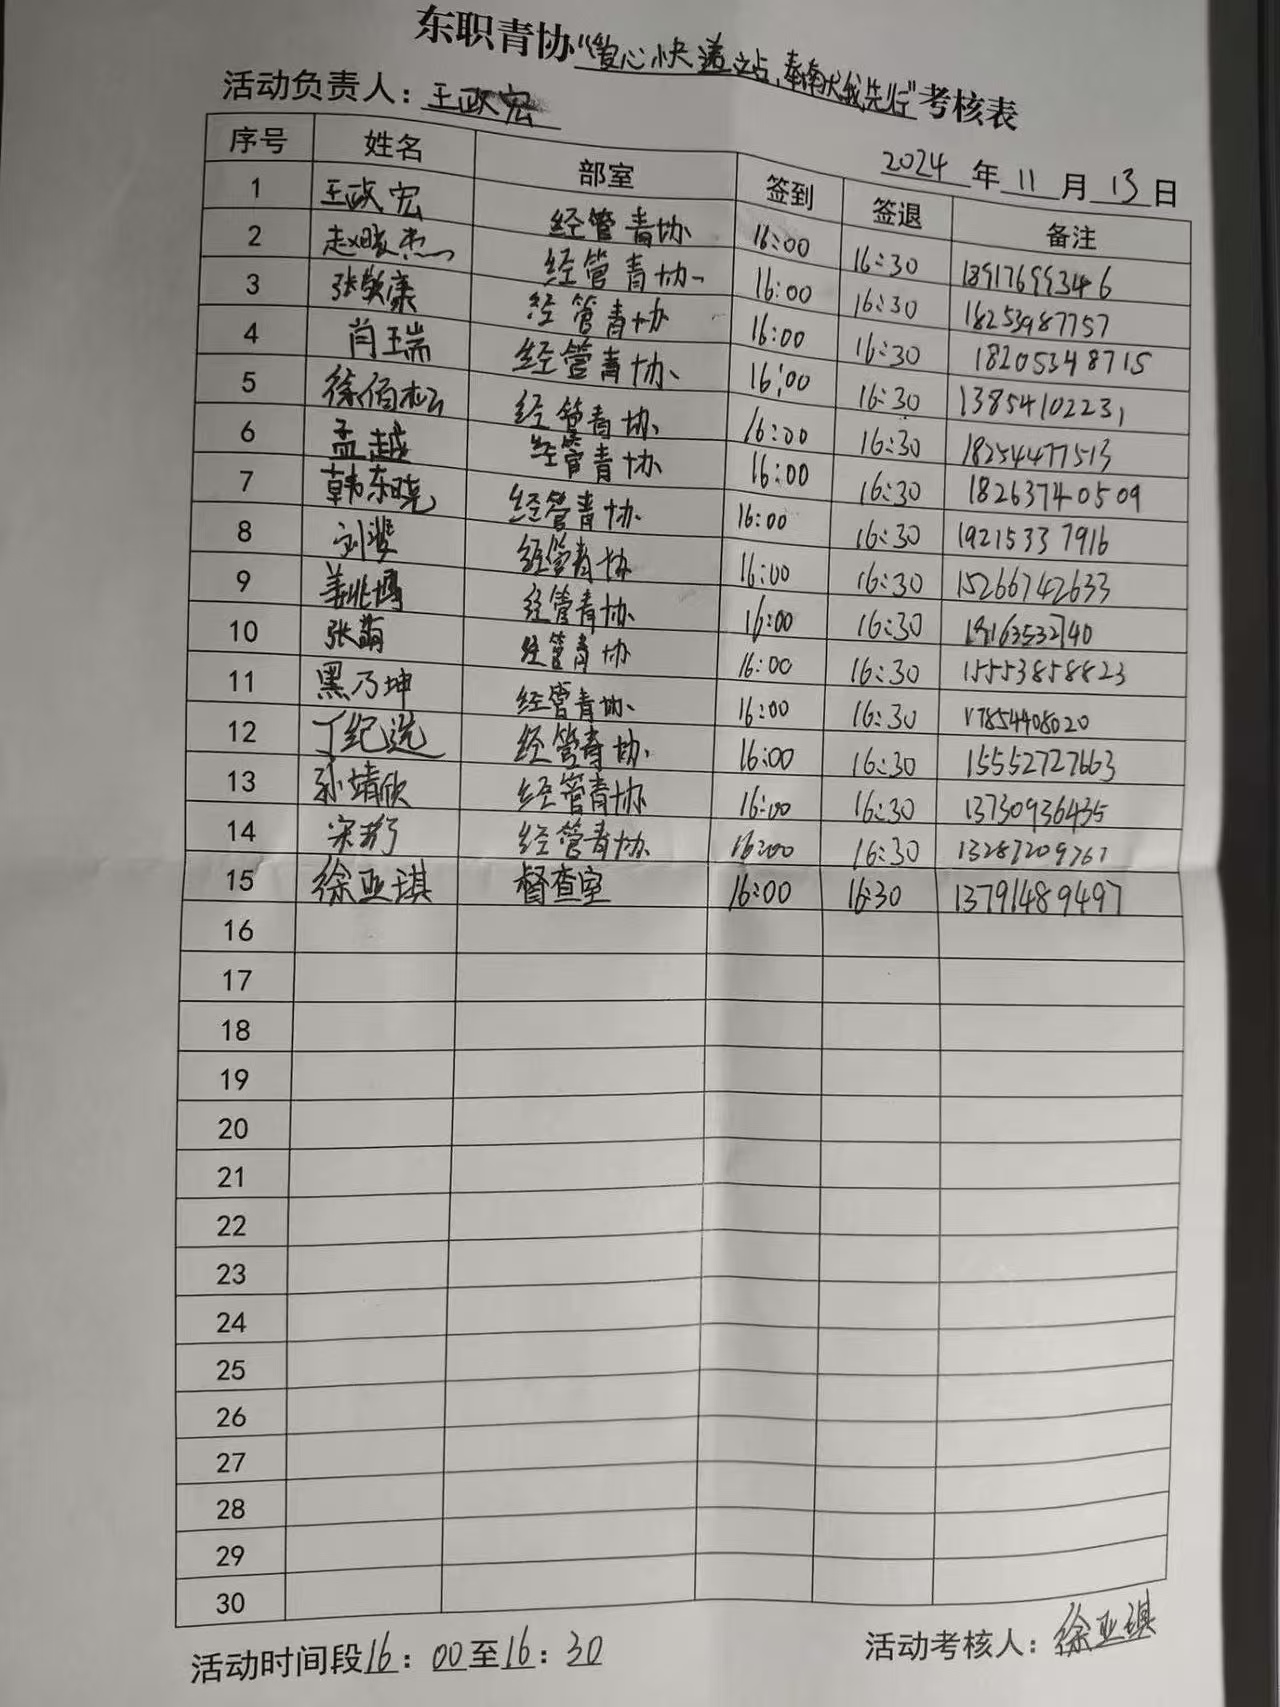 东职青协“爱心快递之站,奉献我先行”考核表
活动负责人:王政宏
2024年11月13日
序号 姓名 部室 签到 签退 备注
1 王政宏 经管青协 16:00 16:30 13917699346
2 赵晓杰 经管青协 16:00 16:30 18253987757
3 张敬康 经管青协 16:00 16:30 18205348715
4 肖瑞 经管青协 16:00 16:30 13854102231
5 徐佰松 经管青协 16:00 16:30 18254477513
6 孟越 经管青协 16:00 16:30 18263740509
7 韩东晓 经管青协 16:00 16:30 19215337916
8 刘 经管青协 16:00 16:30 15266742633
9 姜兆 经管青协 16:00 16:30 19163532740
10 张萌 经管青协 16:00 16:30 15553858823
11 黑乃坤 经管青协 16:00 16:30 17854408020
12 丁纪选 经管青协 16:00 16:30 15552727663
13 孙靖欣 经管青协 16:00 16:30 13730936435
14 宋 经管青协 16:00 16:30 13287209761
15 徐亚琪 督查室 16:00 16:30 13791489497
16
17
18
19
20
21
22
23
24
25
26
27
28
29
30
活动时间段16:00至16:30 活动考核人:徐亚琪